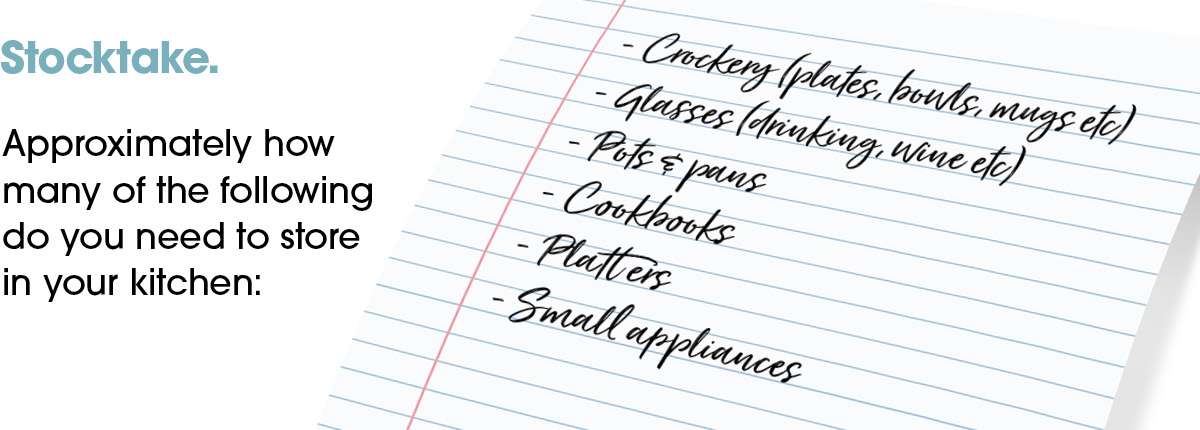 Stocktake.
Approximately how
many of the following
do you need to store
in your kitchen:
- Crockery (plates, bowls, mugs etc)
- Glasses (drinking, wine etc)
- Pots & pans
- Cookbooks
- Platters
- Small appliances